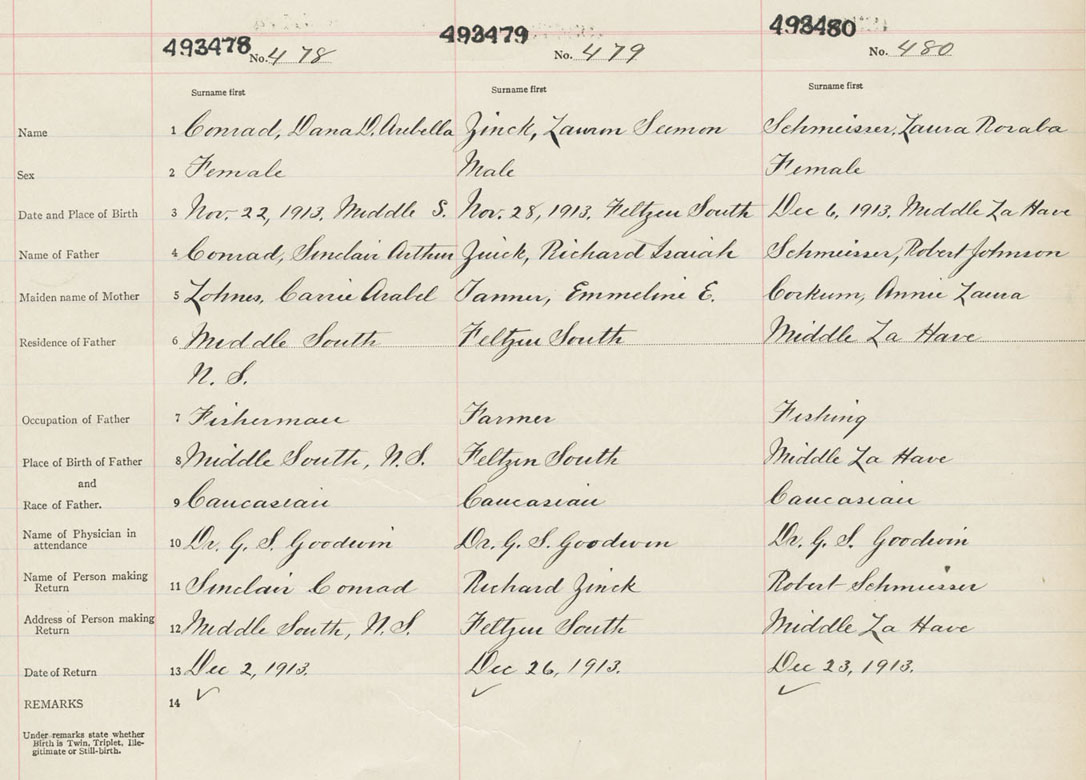 493478 No. 478 493479 No. 479 493480 No. 480
Surname first Surname first Surname first
Name 1 Conrad, Dana D. Arabella Zinck, Lawron Seemon Schmeisser, Laura Roraba
Sex 2 Female Male Female
Date and Place of Birth 3 Nov. 22, 1913. Middle S. Nov. 28, 1913. Feltzen South Dec 6, 1913. Middle La Have
Name of Father 4 Conrad, Sinclair Arthur Zinck, Richard Isaiah Schmeisser, Robert Johnson
Maiden name of Mother 5 Lohnes, Carrie Arabel Tanner, Emmeline E. Corkum, Annie Laura
Residence of Father 6 Middle South Feltzen South Middle La Have
N. S.
Occupation of Father 7 Fisherman Farmer Fishing
Place of Birth of Father 8 Middle South, N. S. Feltzen South Middle La Have
and
Race of Father. 9 Caucasian Caucasian Caucasian
Name of Physician in
attendance 10 Dr. G. S. Goodwin Dr. G. S. Goodwin Dr. G. S. Goodwin
Name of Person making
Return 11 Sinclair Conrad Richard Zinck Robert Schmeisser
Address of Person making
Return 12 Middle South, N. S. Feltzen South Middle La Have
Date of Return 13 Dec 2, 1913. Dec 26, 1913. Dec 23, 1913.
REMARKS 14
Under remarks state whether
Birth is Twin, Triplet, Ille-
gitimate or Still-birth.